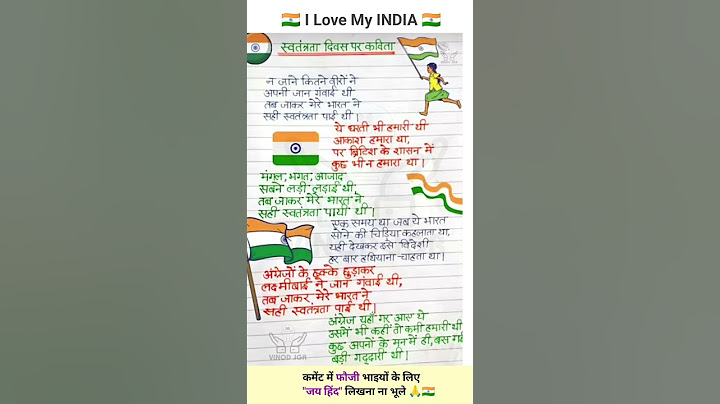 🇮🇳 I Love My INDIA 🇮🇳
स्वतंत्रता दिवस पर कविता
न जाने कितने वीरों ने
अपनी जान गंवाई थी
तब जाकर मेरे भारत ने
सही स्वतंत्रता पाई थी।
ये धरती भी हमारी थी
आकाश हमारा था,
पर ब्रिटिश के शासन में
कुछ भी न हमारा था।
मंगल, भगत, आजाद
सबने लड़ी लड़ाई थी,
तब जाकर मेरे भारत ने
सही स्वतंत्रता पायी थी।
एक समय था जब ये भारत
सोने की चिड़िया कहलाता था,
यही देखकर इसे विदेशी
हर बार हथियाना चाहता था।
अंग्रेजों के छक्के छुड़ाकर
लक्ष्मीबाई ने जान गंवाई थी,
तब जाकर मेरे भारत ने
सही स्वतंत्रता पाई थी।
अंग्रेज यहाँ पर आए थे
उसमें भी कहीं तो कमी हमारी थी
कुछ अपनों के मन में ही, बस
बड़ी गद्दारी थी।
VINOD JGR
कमेंट में फौजी भाइयों के लिए
"जय हिंद" लिखना ना भूले 🙏🇮🇳